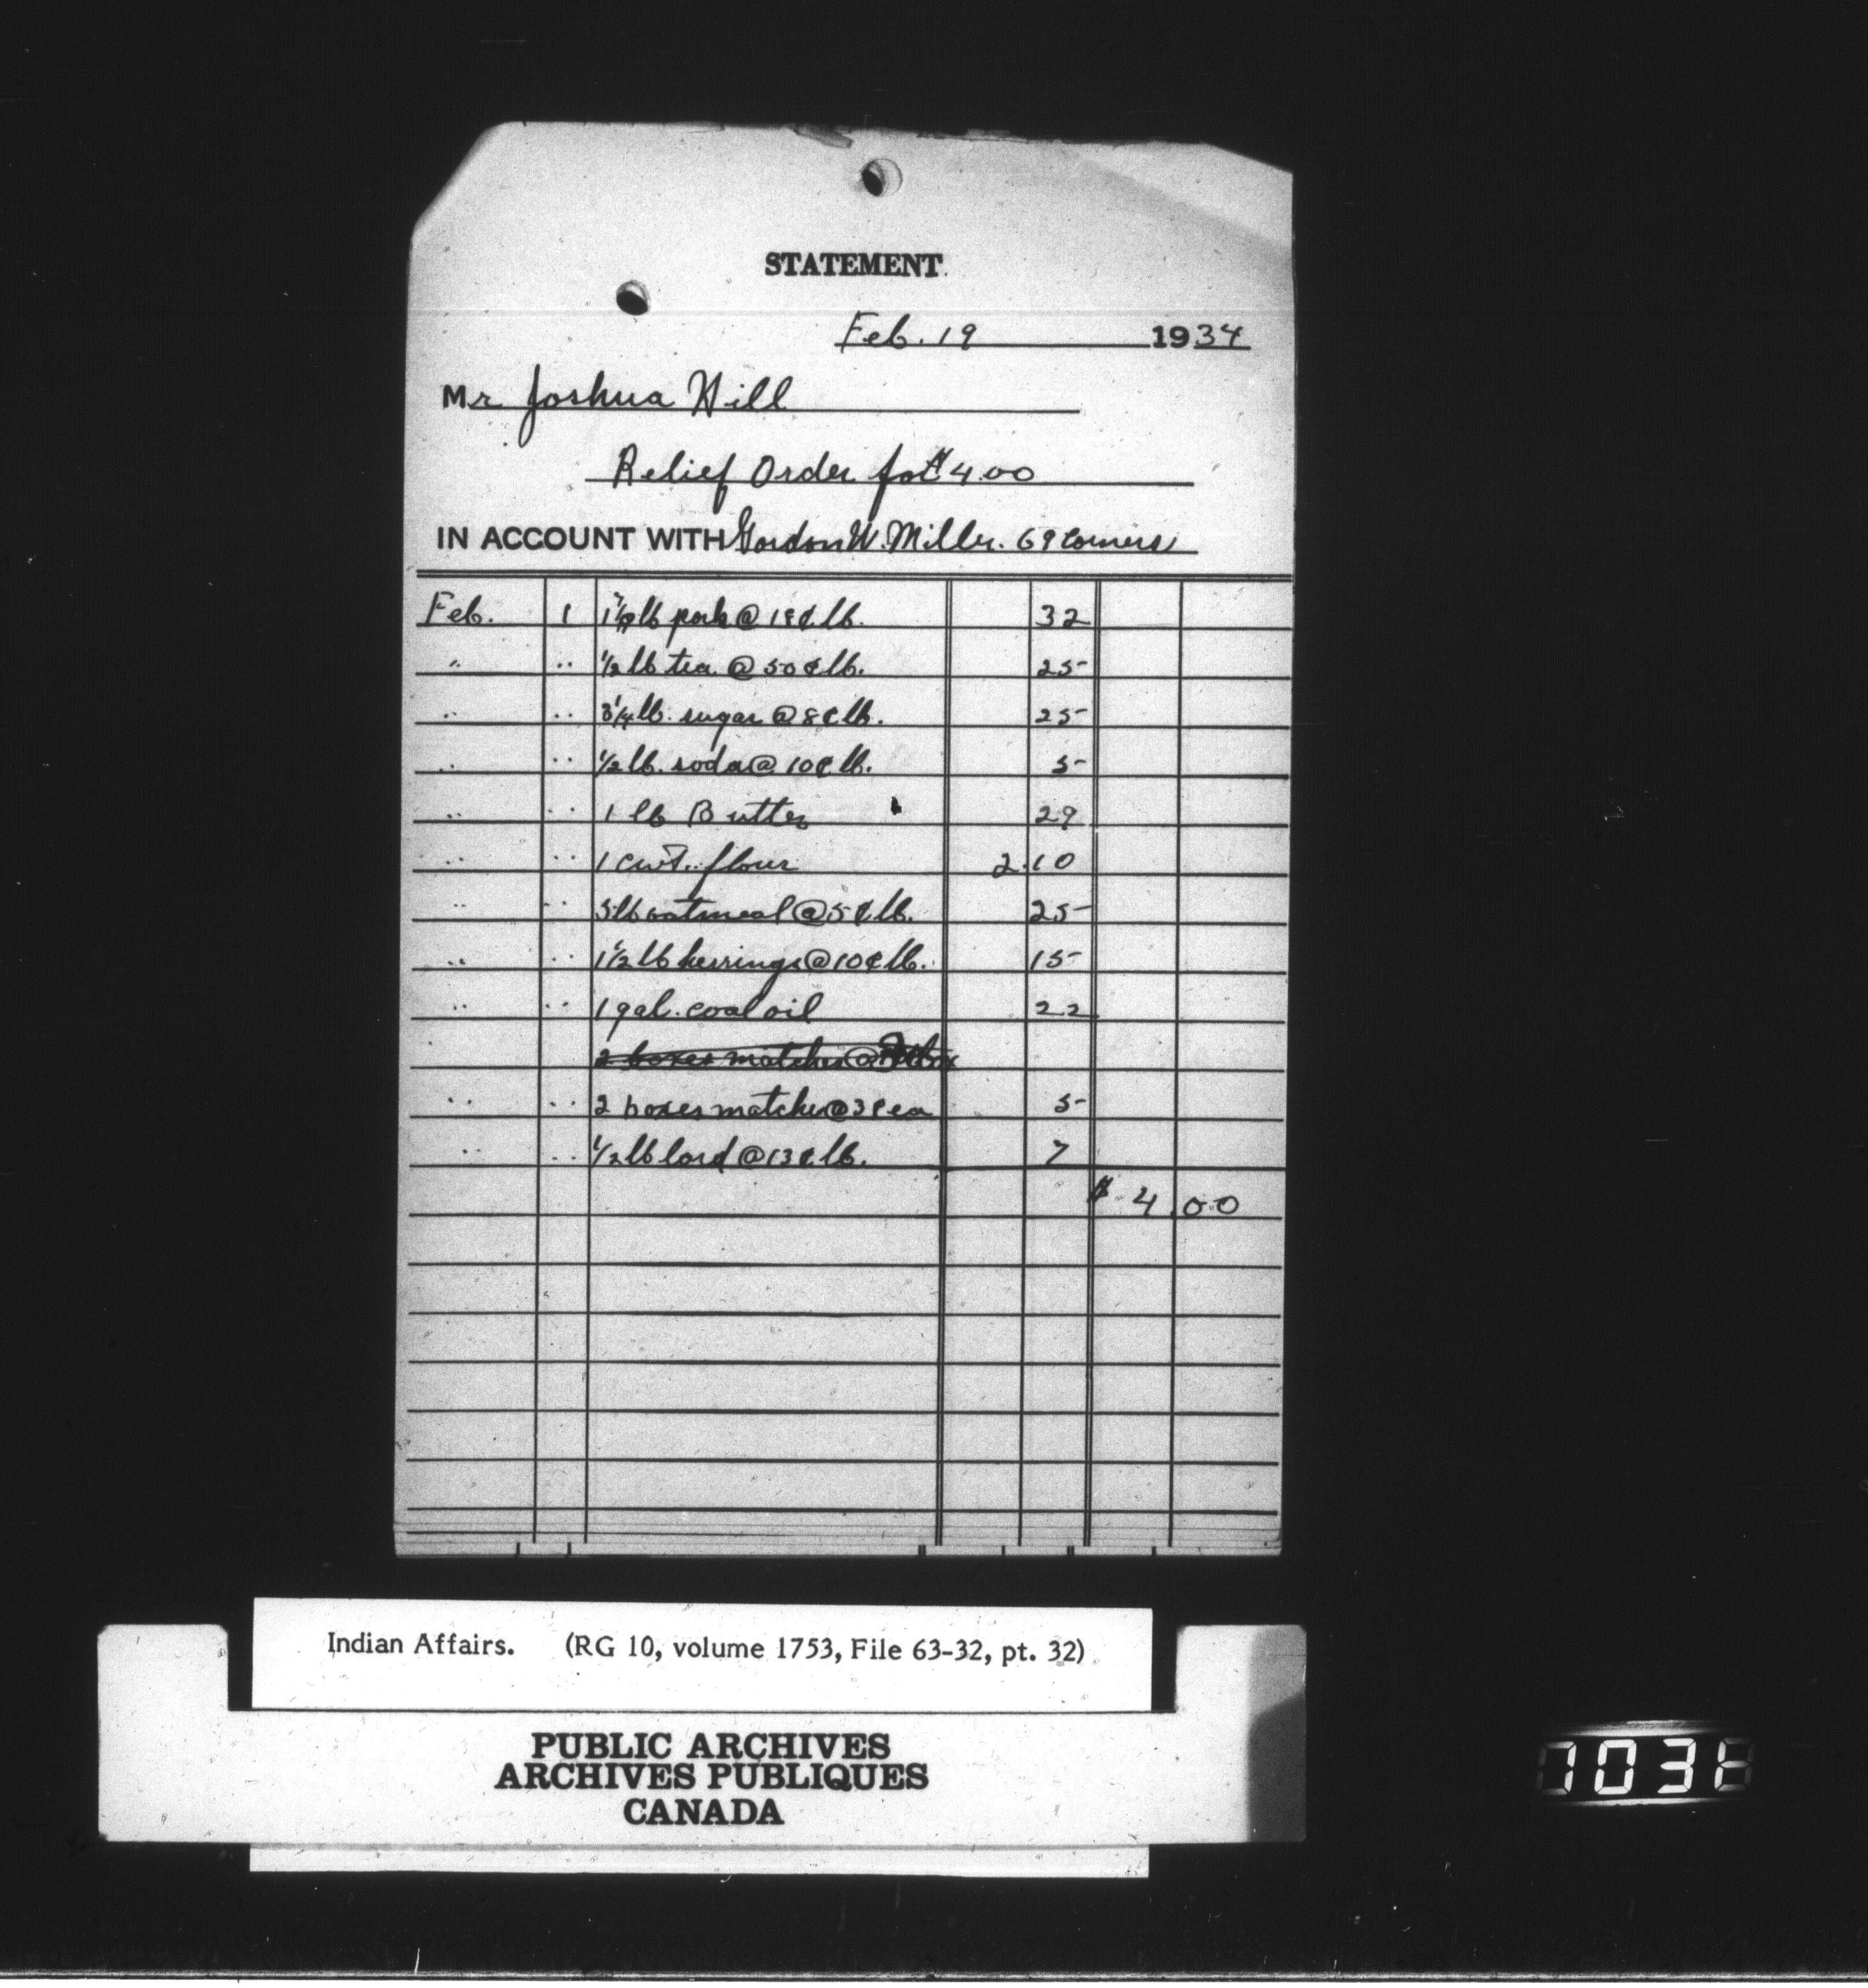 STATEMENT
Feb. 19 1934
Mr Joshua Hill
Relief Order for $4.00
IN ACCOUNT WITH Gordon W. Miller. 69 Corners
Feb. 1 1 7/8 lb pork @ 18¢ lb. 32
" " 1/2 lb tea @ 50¢ lb. 25
" " 3 1/4 lb. sugar @ 8¢ lb. 25
" " 1/2 lb. soda @ 10¢ lb. 5
" " 1 lb Butter 29
" " 1 cwt. flour 2.10
" " 5 lb oatmeal @ 5¢ lb. 25
" " 1 1/2 lb herrings @ 10¢ lb. 15
" " 1 gal. coal oil 22
2 boxes matches @
" " 2 boxes matches @ 3¢ ea 5
" " 1/2 lb lard @ 13¢ lb. 7
$ 4.00
Indian Affairs. (RG 10, volume 1753, File 63-32, pt. 32)
PUBLIC ARCHIVES
ARCHIVES PUBLIQUES
CANADA